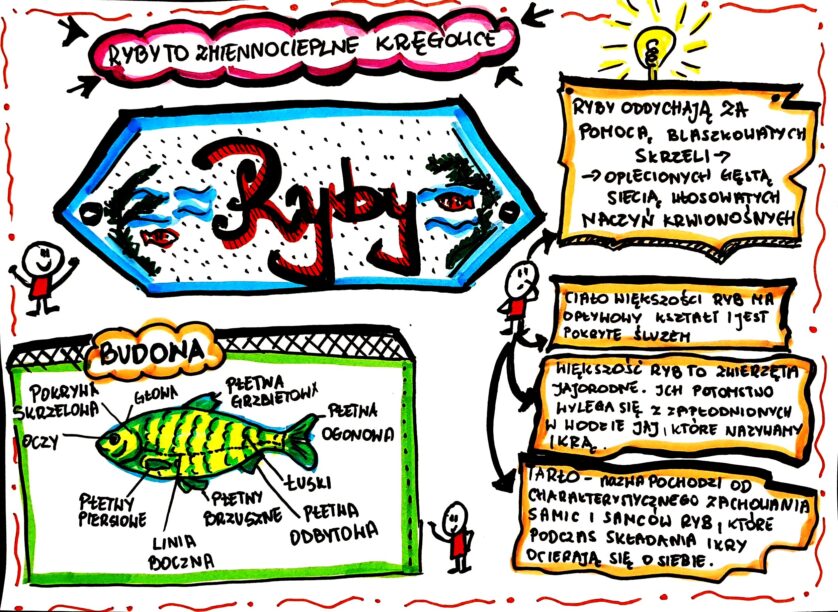 RYBY TO ZMIENNOCIEPLNE KRĘGOWCE
Ryby
RYBY ODDYCHAJĄ ZA
POMOCĄ BLASZKOWATYCH
SKRZELI →
→ OPLECIONYCH GĘSTĄ
SIECIĄ WŁOSOWATYCH
NACZYŃ KRWIONOŚNYCH
CIAŁO WIĘKSZOŚCI RYB MA
OPŁYWOWY KSZTAŁT I JEST
POKRYTE ŚLUZEM
WIĘKSZOŚĆ RYB TO ZWIERZĘTA
JAJORODNE. ICH POTOMSTWO
WYLĘGA SIĘ Z ZAPŁODNIONYCH
W WODZIE JAJ, KTÓRE NAZYWAMY
IKRĄ.
TARŁO - NAZWA POCHODZI OD
CHARAKTERYSTYCZNEGO ZACHOWANIA
SAMIC I SAMCÓW RYB, KTÓRE
PODCZAS SKŁADANIA IKRY
OCIERAJĄ SIĘ O SIEBIE.
BUDOWA
POKRYWA
SKRZELOWA
GŁOWA
PŁETWA
GRZBIETOWA
PŁETWA
OGONOWA
OCZY
ŁUSKI
PŁETWY
PIERSIOWE
PŁETWY
BRZUSZNE
PŁETWA
ODBYTOWA
LINIA
BOCZNA